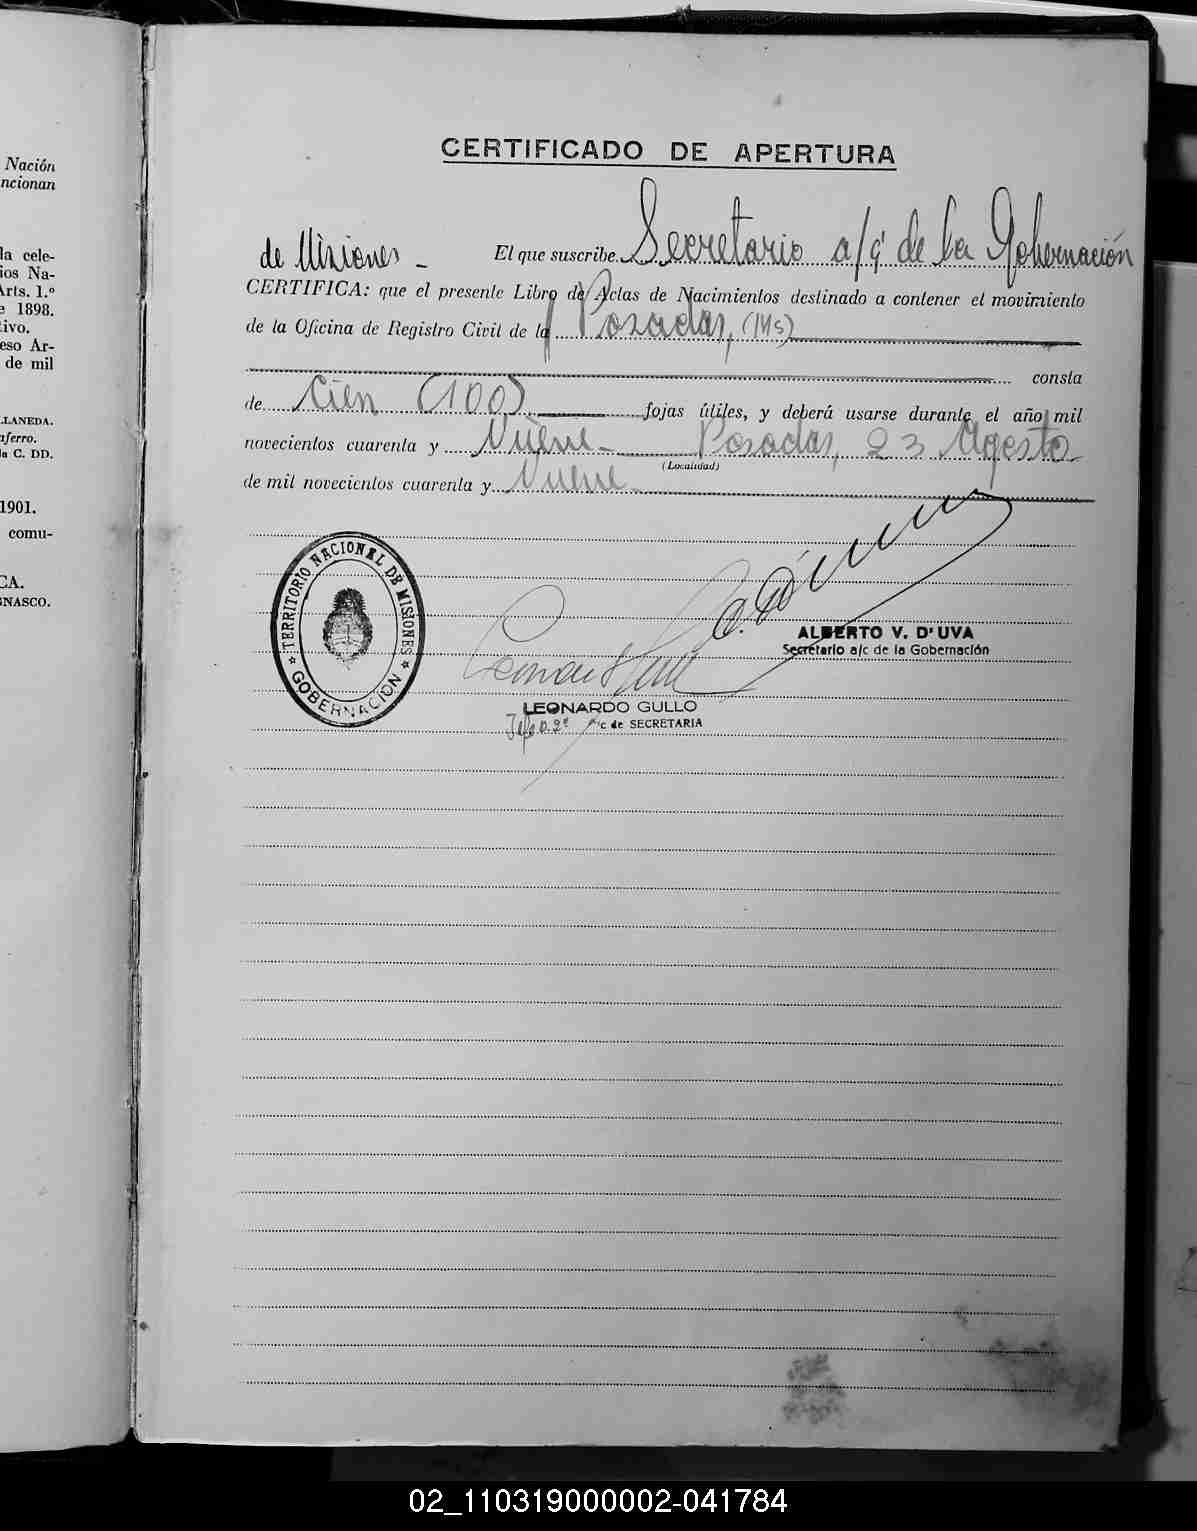 Nación
ncionan
la cele-
ios Na-
Arts. 1.º
e 1898.
ivo.
eso Ar-
de mil
LLANEDA.
aferro.
la C. DD.
1901.
comu-
CA.
GNASCO.
CERTIFICADO DE APERTURA
El que suscribe Secretario a/c de la Gobernación
de Misiones -
CERTIFICA: que el presente Libro de Actas de Nacimientos destinado a contener el movimiento
de la Oficina de Registro Civil de la Posadas, (Ms)
consta
de Cien (100) fojas útiles, y deberá usarse durante el año mil
novecientos cuarenta y Nueve - Posadas, 23 Agosto
(Localidad)
de mil novecientos cuarenta y Nueve -
TERRITORIO NACIONAL DE MISIONES
* GOBERNACIÓN *
ALBERTO V. D'UVA
Secretario a/c de la Gobernación
LEONARDO GULLO
a/c de SECRETARIA
02_110319000002-041784